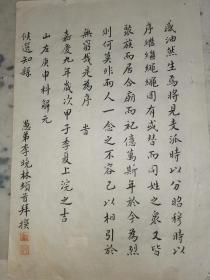 感油然生焉將見支派時以分昭穆時以
序繼繼繩繩固有盛替而同姓之衆又皆
聚族而居合廟而祀億萬斯年於今為烈
則何莫非而人一念之不容已以相引於
無窮哉是為序 旹
嘉慶九年歲次甲子季夏上浣之吉
山左庚申科解元
候選知縣
愚弟李晥林頓首拜撰